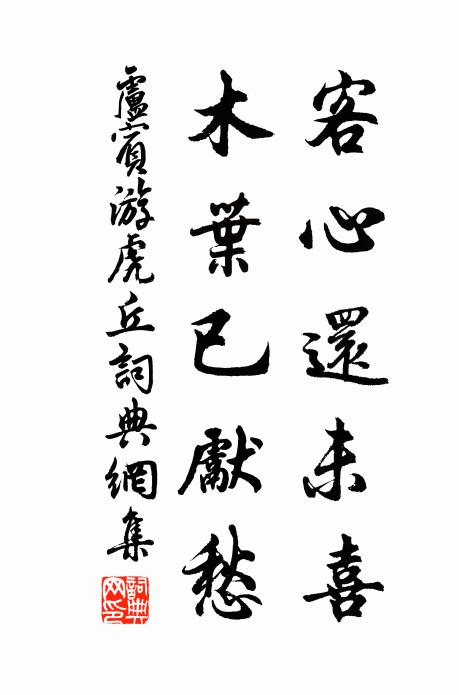 客心還未喜
木葉已獻愁
盧賓游虎丘詞典網集
詞典網印